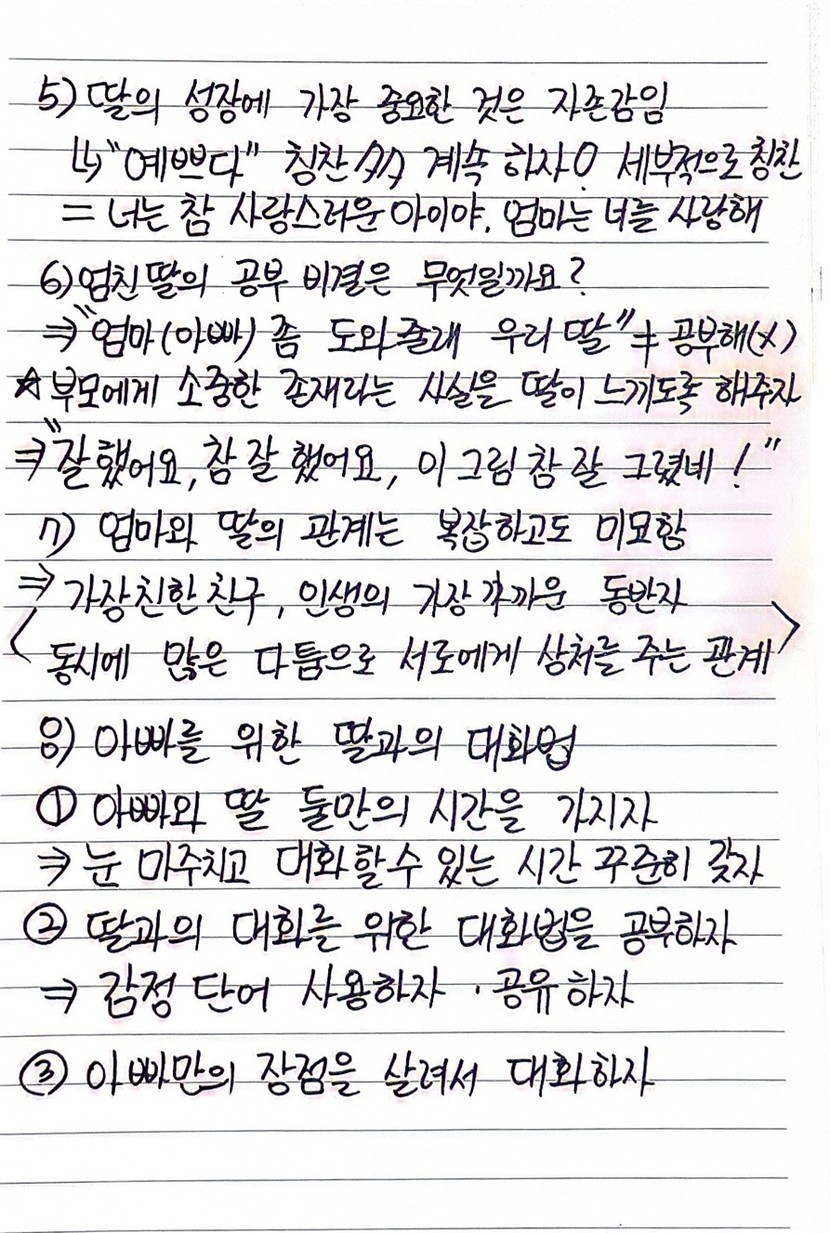 5) 딸의 성장에 가장 중요한 것은 자존감임
↳ "예쁘다" 칭찬 多多 계속 하자! 세부적으로 칭찬
= 너는 참 사랑스러운 아이야. 엄마는 너를 사랑해
6) 엄친딸의 공부 비결은 무엇일까요?
⇒ "엄마(아빠) 좀 도와줄래 우리 딸" ≠ 공부해(X)
☆ 부모에게 소중한 존재라는 사실을 딸이 느끼도록 해주자
⇒ "잘했어요, 참 잘했어요, 이 그림 참 잘 그렸네!"
7) 엄마와 딸의 관계는 복잡하고도 미묘함
⇒ 가장 친한 친구, 인생의 가장 가까운 동반자
< 동시에 많은 다툼으로 서로에게 상처를 주는 관계 >
8) 아빠를 위한 딸과의 대화법
① 아빠와 딸 둘만의 시간을 가지자
⇒ 눈 마주치고 대화할 수 있는 시간 꾸준히 갖자
② 딸과의 대화를 위한 대화법을 공부하자
⇒ 감정 단어 사용하자 · 공유하자
③ 아빠만의 장점을 살려서 대화하자